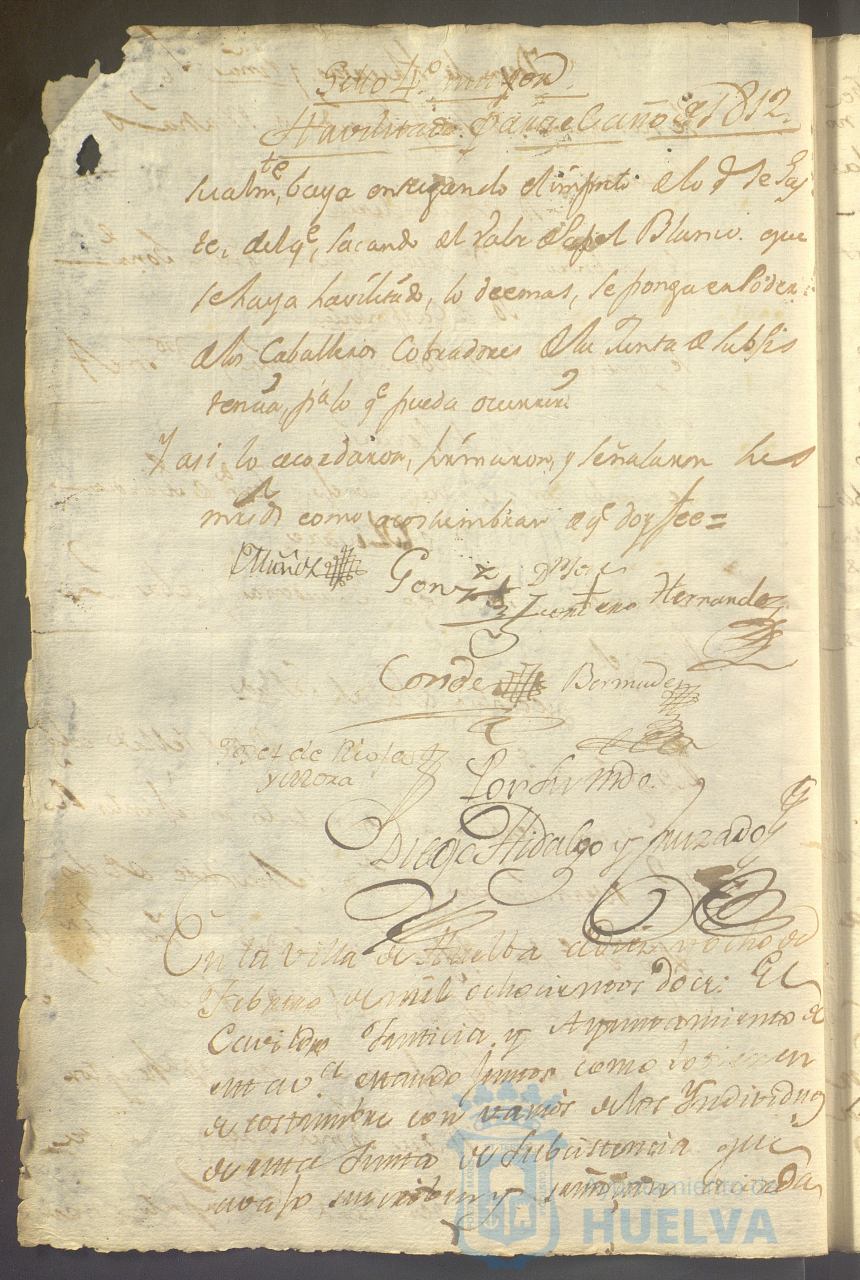 Sello 4.º mayor
Havilitado para el año de 1812.
sualm.te, baya entregando el importe de lo q se gas
te, del q.e, sacando el valor del papel Blanco que
se haya havilitado, lo demas, se ponga en Poder
de los Caballeros Cobradores de la Junta de subsis
tencia, p.a lo q.e pueda ocurrir.
Y asi lo acordaron, firmaron, y señalaron sus
mrds como acostumbran de q.e doy fee =
Muñoz Gonz.z Zenteno Hernandez
Conde Bermudez
Josef de Rioja
y Mora
Por su mdo.
Diego Hidalgo y Juzado
En la villa de Huelba a diez y ocho de
Febrero de mil ochocientos doce: El
Cavildo Justicia y Ayuntamiento de
esta v.a estando juntos como lo tienen
de costumbre con varios de los Individuos
de esta Junta de Subsistencia que
avajo suscriben y
Ayuntamiento de
HUELVA